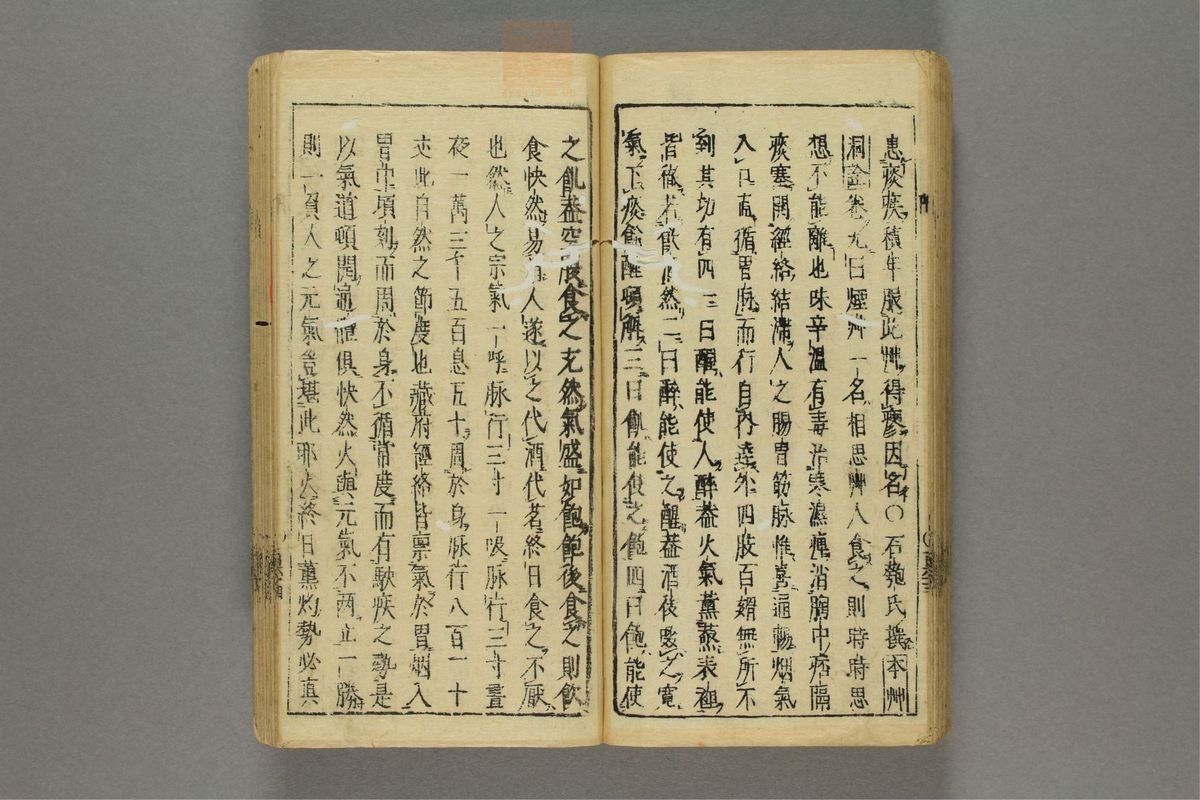 患痰疾積年服此艸得瘳因名〇石匏氏撰本艸
洞詮卷九曰煙艸一名相思艸人食之則時時思
想不能離也味辛溫有毒治寒濕痺消胸中痞隔
痰塞開經絡結滯人之腸胃筋脉惟喜通暢烟氣
入口直循胃脉而行自內達外四肢百體無所不
到其功有四一曰醒能使人醉蓋火氣薰蒸表裡
皆徹若飲酒然二曰醉能使之醒蓋酒後啜之寬
氣下痰餘酲頓解三曰飢能使之飽四曰飽能使
之飢蓋空腹食之充然氣盛如飽飽後食之則飲
食快然易消人遂以之代酒代茗終日食之不厭
也然人之宗氣一呼脉行三寸一吸脉行三寸晝
夜一萬三千五百息五十周於身脉行八百一十
丈此自然之節度也藏府經絡皆稟氣於胃烟入
胃中頃刻而周於身不循常度而有駛疾之勢是
以氣道頓開通體俱快然火與元氣不兩立一勝
則一負人之元氣豈堪此邪火終日薰灼勢必真